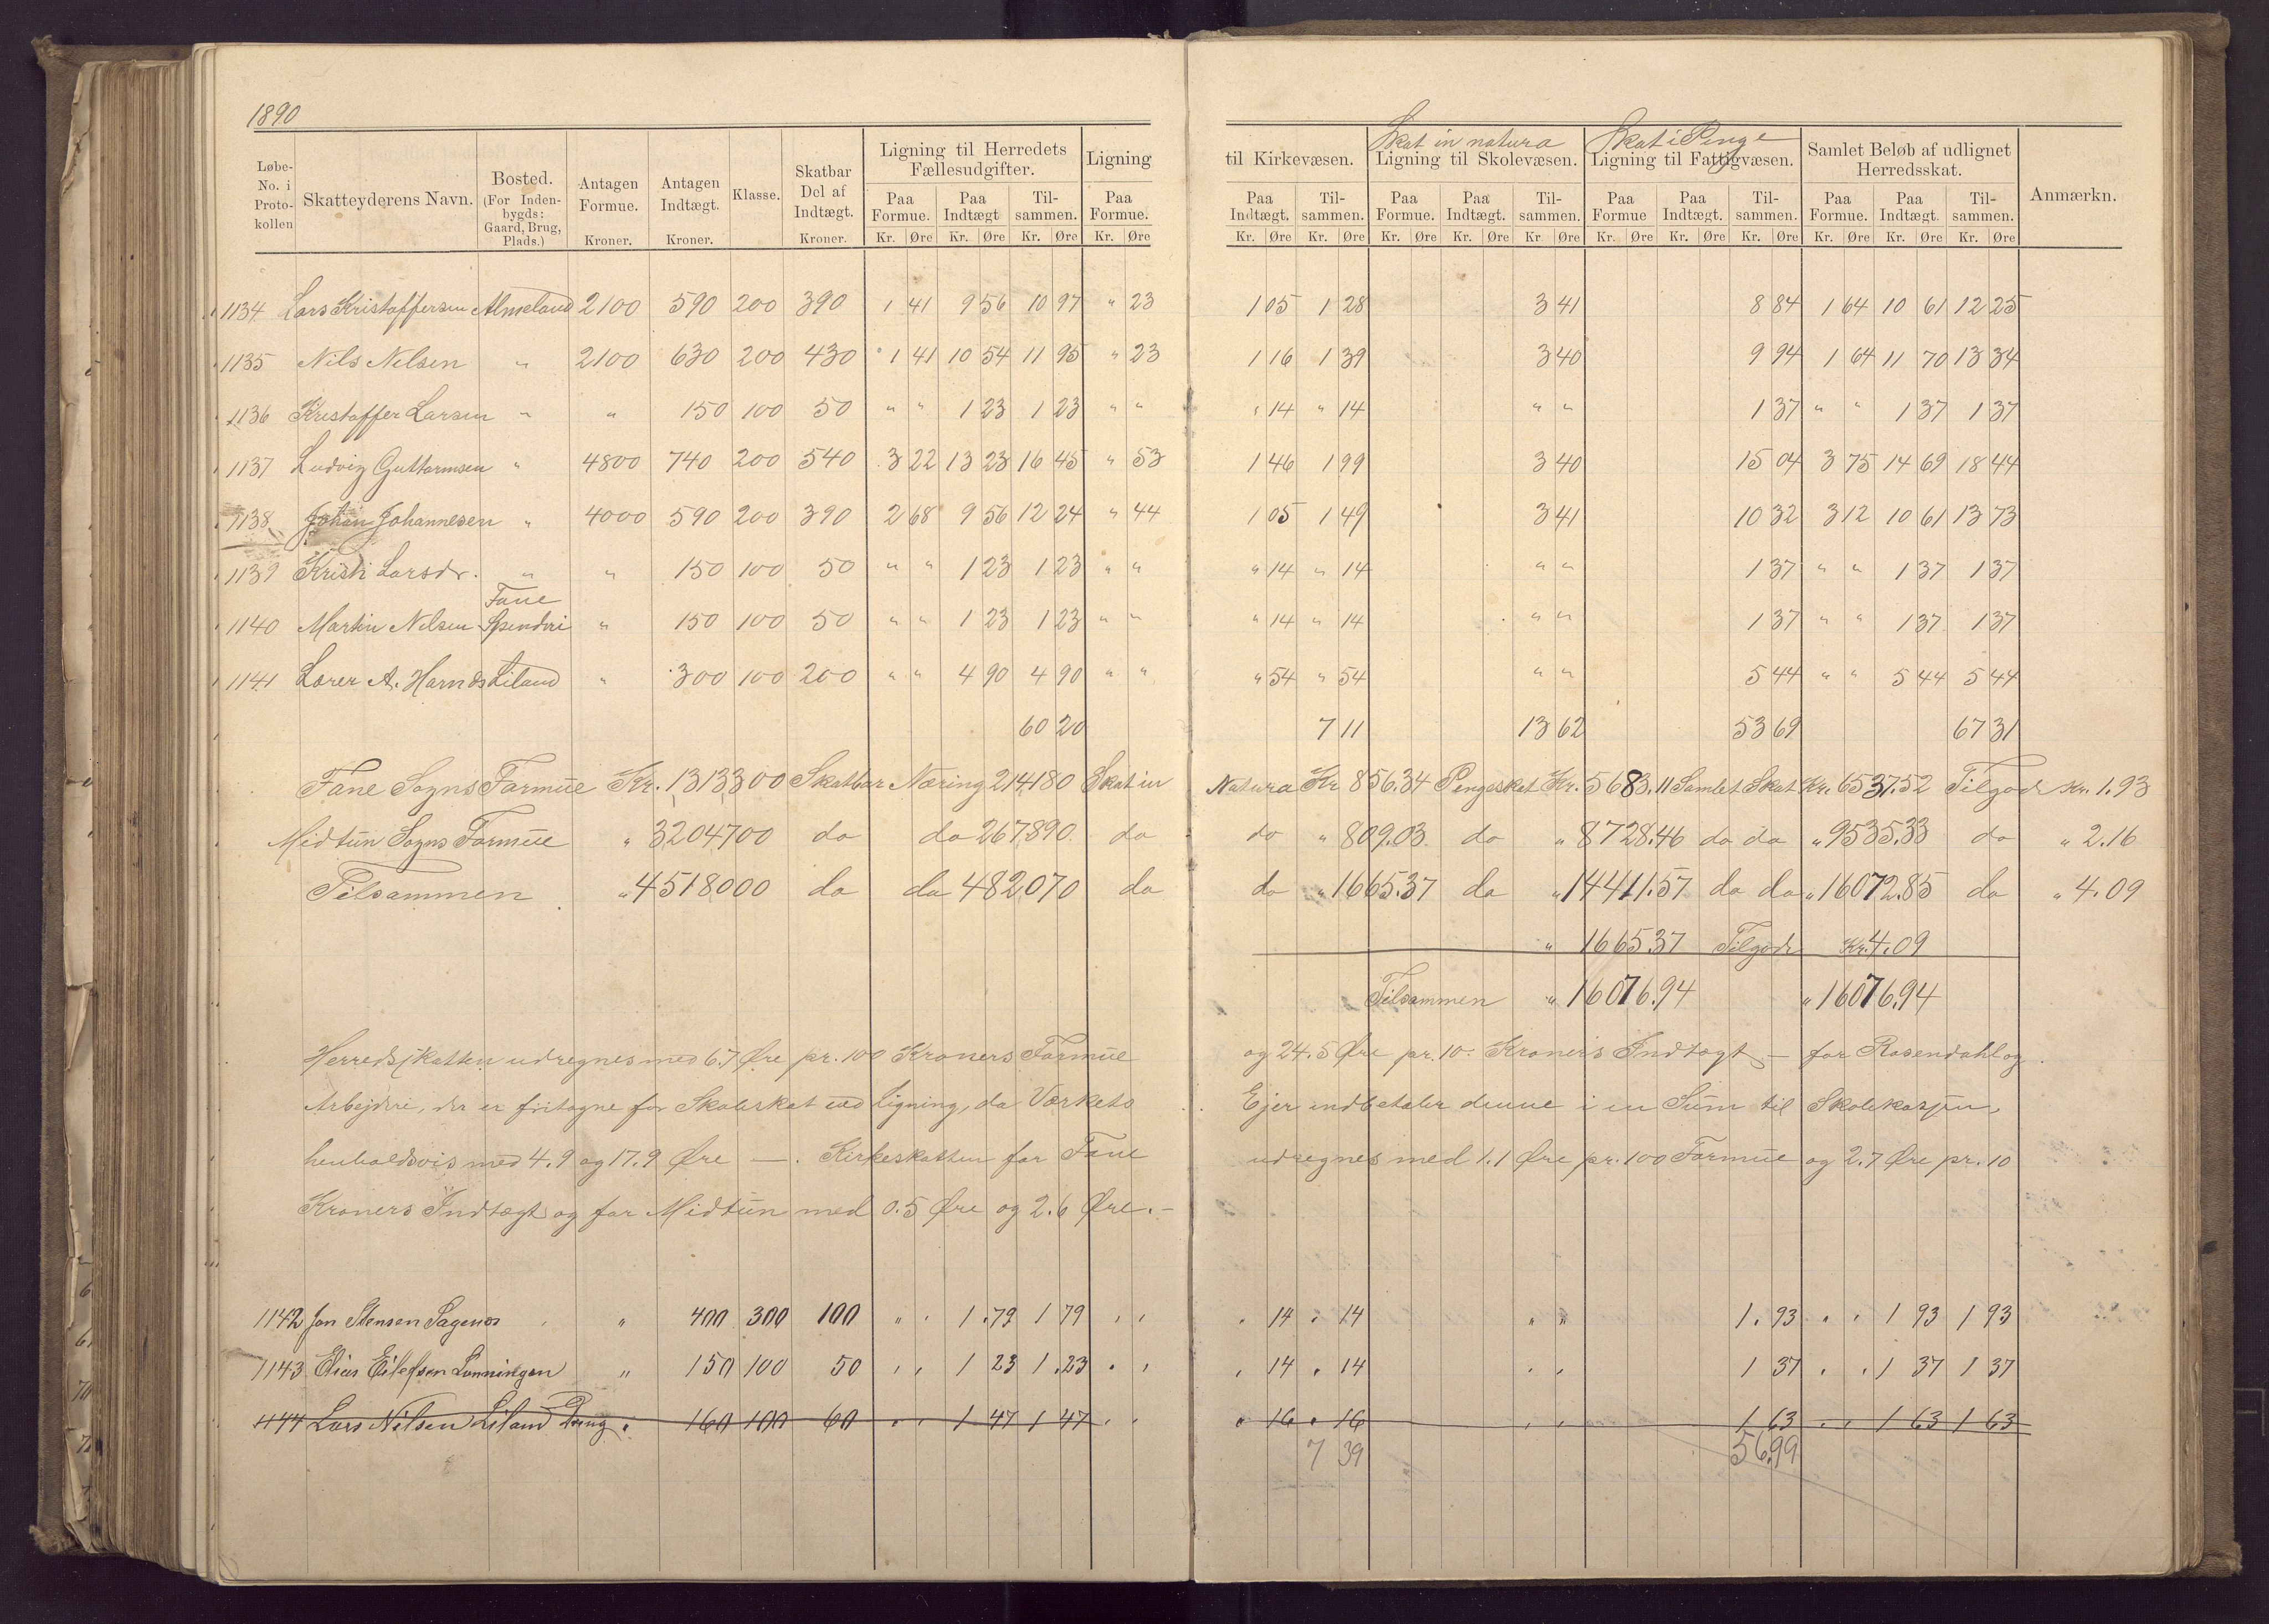 1890
Løbe-No. i Proto-kollen | Skatteyderens Navn. | Bosted. (For Inden-bygds: Gaard, Brug, Plads.) | Antagen Formue. Kroner. | Antagen Indtægt. Kroner. | Klasse. | Skatbar Del af Indtægt. Kroner. | Ligning til Herredets Fællesudgifter. Paa Formue. Kr. Øre Paa Indtægt Kr. Øre Til-sammen. Kr. Øre | Ligning Paa Formue. Kr. Øre | til Kirkevæsen. Paa Indtægt. Kr. Øre Til-sammen. Kr. Øre | Skat in natura Ligning til Skolevæsen. Paa Formue. Kr. Øre Paa Indtægt. Kr. Øre Til-sammen. Kr Øre | Skat i Penge Ligning til Fattigvæsen. Paa Formue Kr. Øre Paa Indtægt. Kr. Øre Til-sammen. Kr. Øre | Samlet Beløb af udlignet Herredsskat. Paa Formue. Kr. Øre Paa Indtægt. Kr. Øre Til-sammen. Kr. Øre | Anmærkn.
1134 Lars Kristoffersen Almeland 2100 590 200 390 1 41 9 56 10 97 " 23 1 05 1 28 3 41 8 84 1 64 10 61 12 25
1135 Nils Nilsen " 2100 630 200 430 1 41 10 54 11 95 " 23 1 16 1 39 3 40 9 94 1 64 11 70 13 34
1136 Kristoffer Larsen " " 150 100 50 " " 1 23 1 23 " " " 14 " 14 " " 1 37 " " 1 37 1 37
1137 Ludvig Guttormsen " 4800 740 200 540 3 22 13 23 16 45 " 53 1 46 1 99 3 40 15 04 3 75 14 69 18 44
1138 Johan Johannesen " 4000 590 200 390 2 68 9 56 12 24 " 44 1 05 1 49 3 41 10 32 3 12 10 61 13 73
1139 Kristi Larsdr. " " 150 100 50 " " 1 23 1 23 " " " 14 " 14 " " 1 37 " " 1 37 1 37
1140 Martin Nilsen Fane Spinderi " 150 100 50 " " 1 23 1 23 " " " 14 " 14 " " 1 37 " " 1 37 1 37
1141 A. Liland " 300 100 200 " " 4 90 4 90 " " " 54 " 54 " " 5 44 " " 5 44 5 44
60 20 7 11 13 62 53 69 67 31
Fane Sogns Formue Kr. 1313300 Skatbar Næring 214180 Skat in Natura Kr 856.34 Pengeskat Kr. 5683.11 Samlet Skat Kr. 6537.52 Tilgode Kr. 1.93
Midtun Sogns Formue " 3204700 do do 267890 do do " 809.03 do " 8728.46 do do " 9535.33 do " 2.16
Tilsammen " 4518000 do do 482070 do do " 1665.37 do " 14411.57 do do " 16072.85 do " 4.09
" 1665.37 Tilgode Kr. 4.09
Tilsammen " 16076.94 " 16076.94
Herredsskatten udregnes med 6.7 Øre pr. 100 Kroners Formue og 24.5 Øre pr. 10. Kroners Indtægt – for Rosendahl og
Arbejdere, der er fritagne for Skoleskat ved Ligning, da Værkets Ejer indbetaler denne i en Sum til Skolekassen,
henholdsvis med 4.9 og 17.9 Øre –. Kirkeskatten for Fane udregnes med 1.1 Øre pr. 100 Formue og 2.7 Øre pr. 10
Kroners Indtægt og for Midtun med 0.5 Øre og 2.6 Øre. –
1142 Jon Stensen Sagenes " 400 300 100 " " 1.79 1 79 " " " 14 " 14 " " 1.93 " " 1 93 1 93
1143 Elias Eilefsen Lønningen " 150 100 50 " " 1 23 1.23 " " " 14 " 14 " " 1 37 " " 1 37 1 37
1144 Lars Nilsen Liland " 160 100 60 " " 1 47 1 47 " " " 16 " 16 " " 1 63 " " 1 63 1 63
7 39 56.99